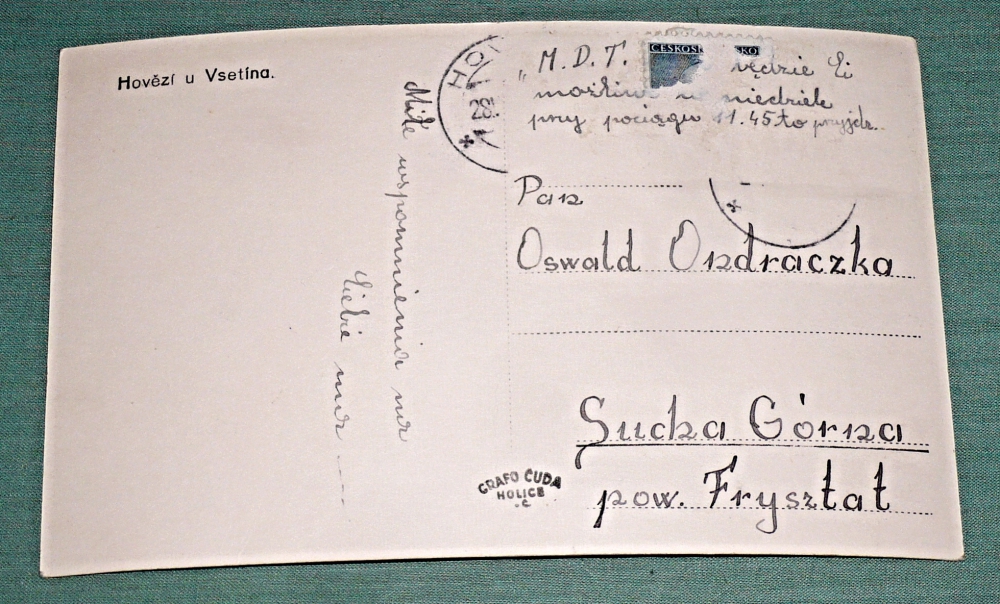 Hovězí u Vsetína.
Miłe wspomnienia
Ciebie
HOV
28. V
ČESKOS SKO
„M. D. T. będzie Ci
możliwe niedziele
przy pociągu 11.45 to przyjdź.
Pan
Oswald Ondraczka
Sucha Górna
pow. Frysztat
GRAFO ČUDA
HOLICE